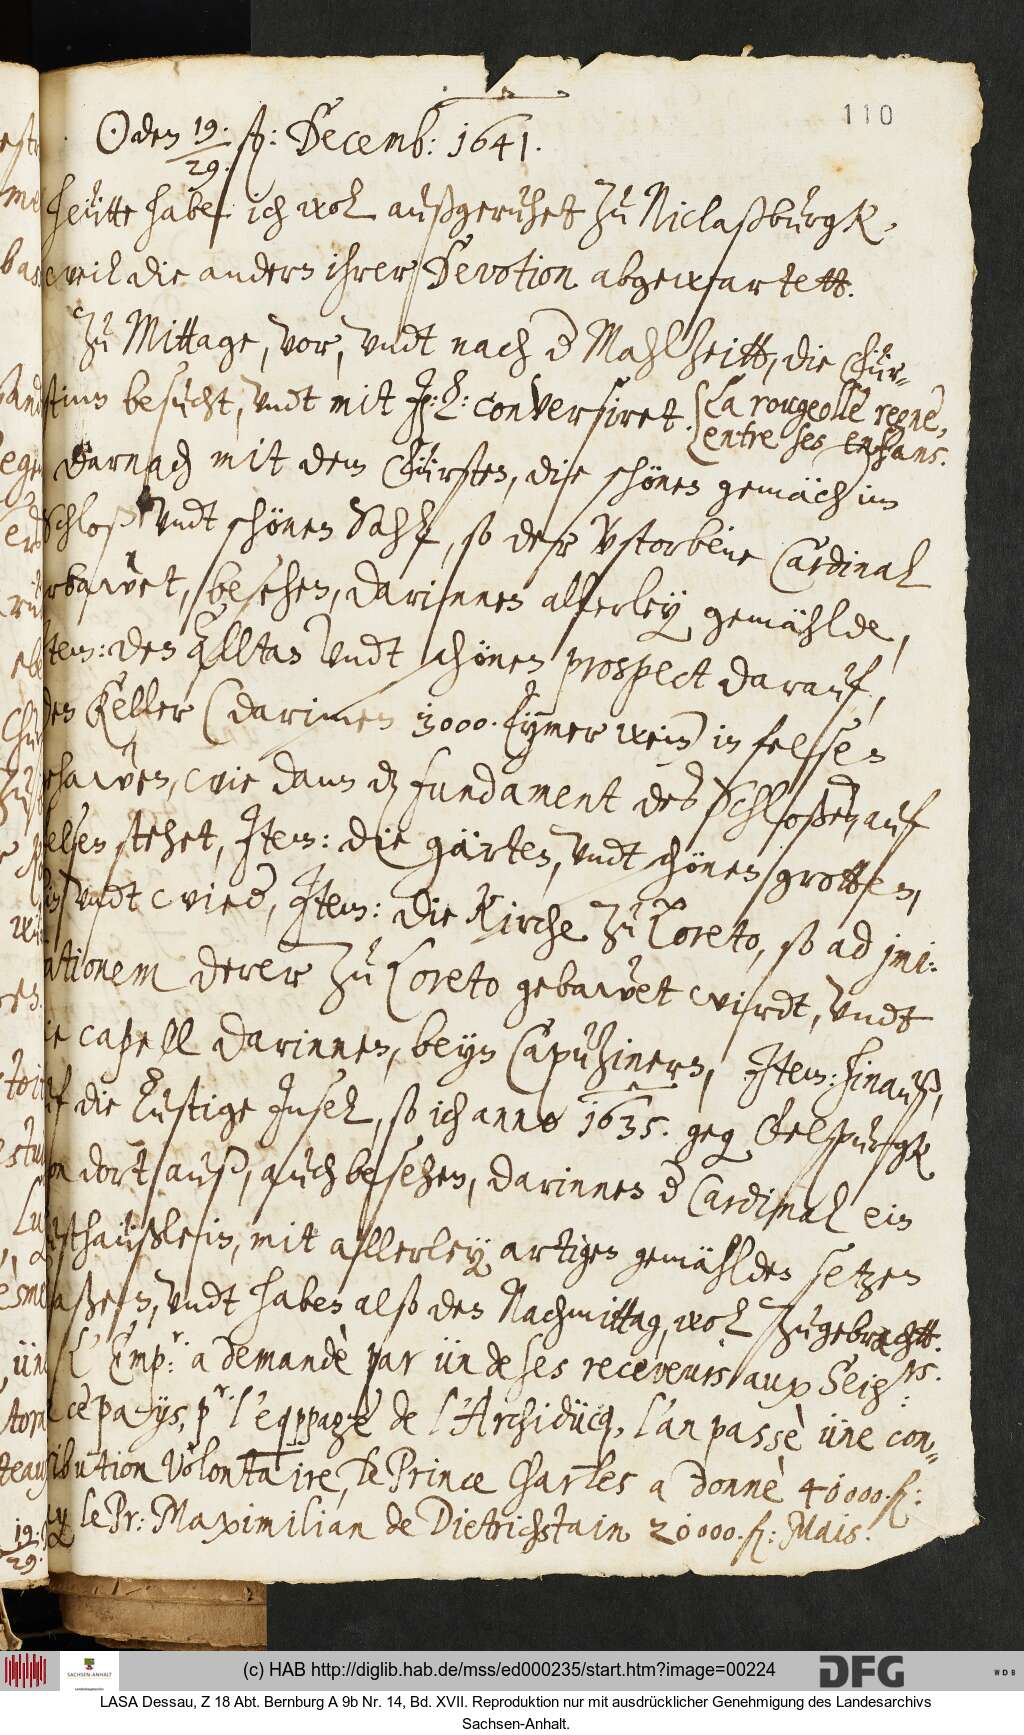 110
⊙ den 19. / 29. st: Decemb: 1641.
heütte habe ich wol außgeruhet zu Niclaßburgk,
weil die andern ihrer Devotion abgewartett.
Zu Mittage, vor, vndt nach d Mahlzeitt, die Für-
stinn besucht, vndt mit Ih: L: conversiret. La rougeolle regne,
entre ses enfans.
Darnach mit dem Fürsten, die schönen gemäch im
Schloß vndt schönen Sahl, so der vstorbene Cardinal
erbawet, besehen, darinnen allerley gemählde,
Item: den Alltan vndt schönen prospect darauf,
den Keller (darinnen 3000. Eymer wein) in felsen
gehawen, wie dann dz fundament des Schloßes, auf
felsen stehet, Item: die gärten, vndt schönen grotten,
vndt wied, Item: die Kirche zu Loreto, so ad imi-
tationem derer zu Loreto gebawet wirdt, vndt
die capell darinnen, beyn Capuzinern, Item: hinauß,
auf die lustige Insel, so ich anno 1635. geg Felspurgk
von dort auß, auch besehen, darinnen d Cardinal ein
lusthaüßlein, mit allerley artigen gemählden setzen
laßen, vndt haben also den Nachmittag, wol zugebrachtt.
L' Emp.r a demandè par ün de ses receveurs aux Seig.rs
de ce pays, p.r l'eqppage de l'Archidücq, l'an passè üne con-
tribution volontaire, le Prince Charles a donnè 40000. fl:
le Pr: Maximilian de Dietrichstain 20000. fl: Mais.
19:
29:
(c) HAB http://diglib.hab.de/mss/ed000235/start.htm?image=00224
SACHSEN-ANHALT
DFG
WDB
LASA Dessau, Z 18 Abt. Bernburg A 9b Nr. 14, Bd. XVII. Reproduktion nur mit ausdrücklicher Genehmigung des Landesarchivs
Sachsen-Anhalt.